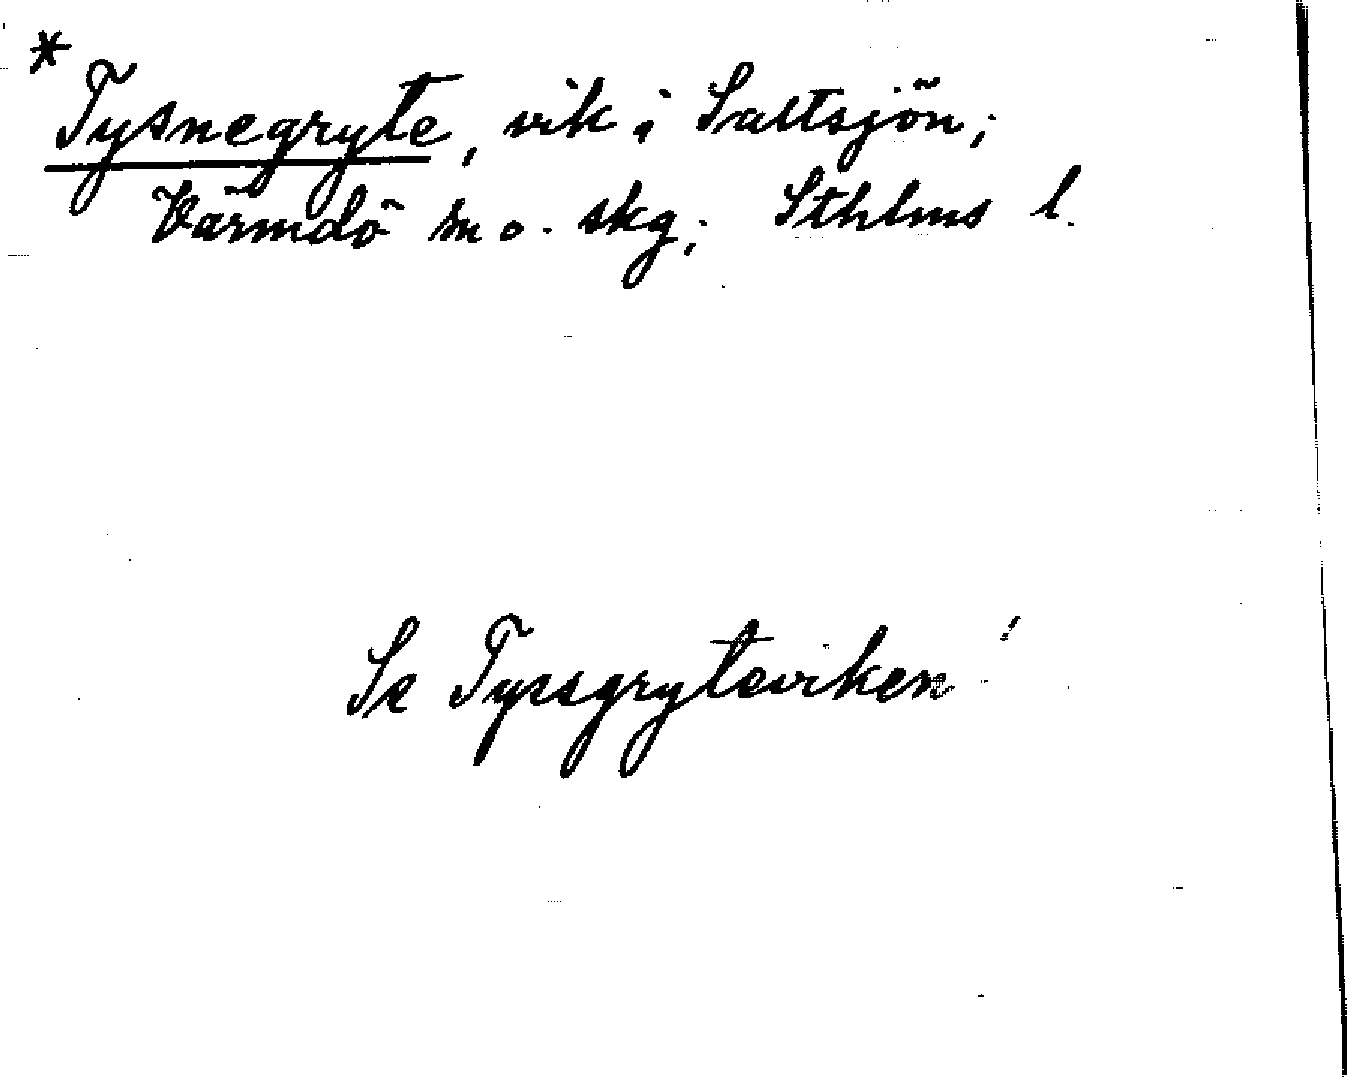 * Tysnegryte, vik i Saltsjön;
Värmdö sn o. skg; Sthlms l.
Se Tyssgryteviken!